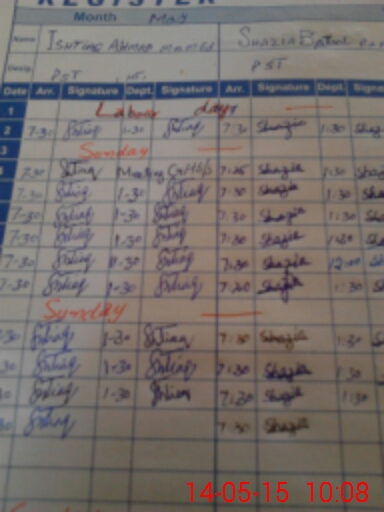 REGISTER
Month May
Name ISHTIAQ AHMAD SHAZIA BATOOL
Desig. PST PST
Date Arr. Signature Dept. Signature Arr. Signature Dept.
1 Labour day
2 7-30 Ishtiaq 1-30 Ishtiaq 7:30 Shazia 1:30 Shazia
3 Sunday
7-30 Ishtiaq Meeting GHSS 7:25 Shazia 1:30 Shazia
7-30 Ishtiaq 1-30 Ishtiaq 7:30 Shazia 1:30 Shazia
7-30 Ishtiaq 1-30 Ishtiaq 7:30 Shazia 1:30
7-30 Ishtiaq 1-30 Ishtiaq 7:30 Shazia 1:30
7-30 Ishtiaq 1-30 Ishtiaq 7:30 Shazia 12:00
7-30 Ishtiaq 1-30 Ishtiaq 7:30 Shazia 1:30
Sunday
:30 Ishtiaq 1-30 Ishtiaq 7:30 Shazia 1:30
30 Ishtiaq 1-30 Ishtiaq 7:30 Shazia 1:30
30 Ishtiaq 1-30 Ishtiaq 7:30 Shazia 1:30
30 Ishtiaq 7:30 Shazia
14-05-15 10:08